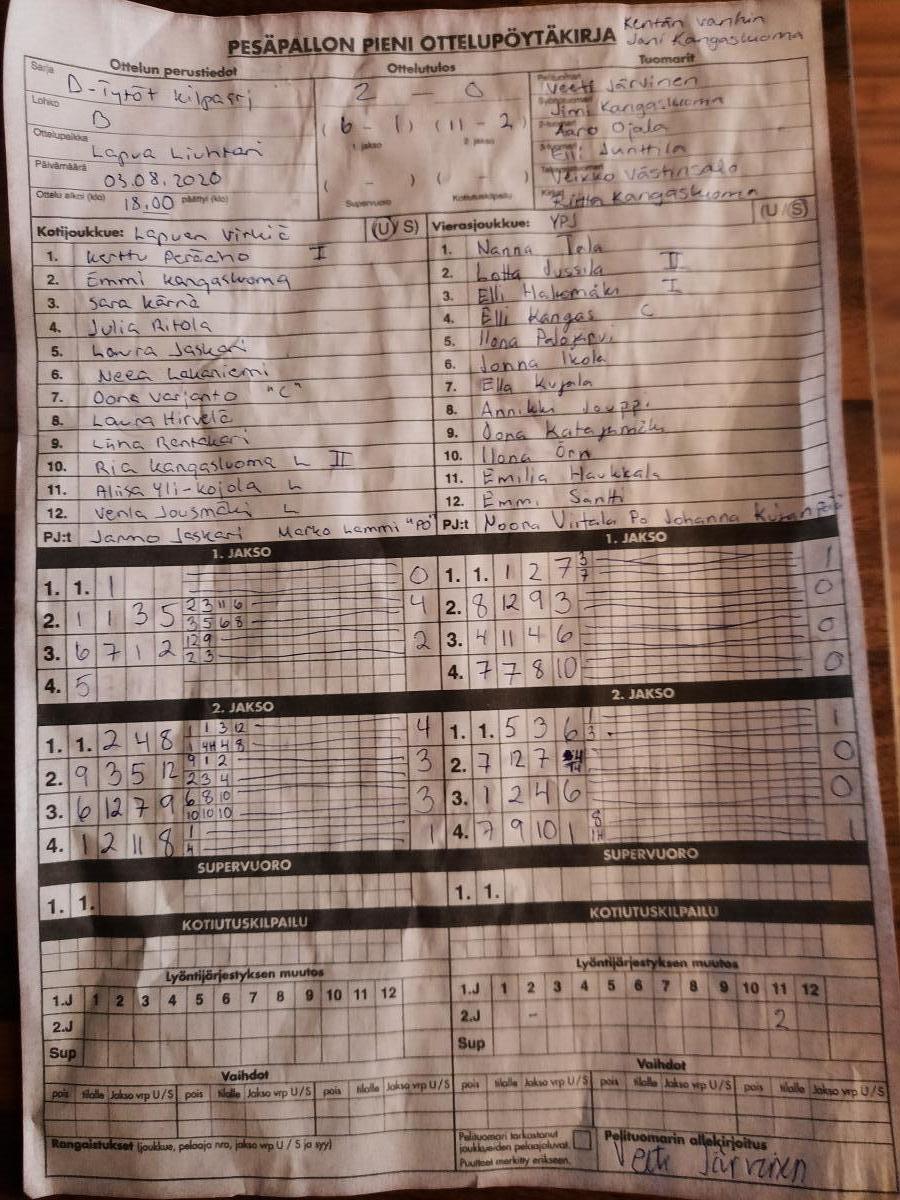 PESÄPALLON PIENI OTTELUPÖYTÄKIRJA
Kentän vanhin
Jani Kangasluoma
Ottelun perustiedot
Sarja D-Tytöt kilpasrj
Lohko B
Ottelupaikka Lapua Liuhtari
Päivämäärä 03.08.2020
Ottelu alkoi (klo) 18.00 päättyi (klo)
Ottelutulos
2 - 0
(6 - 1) (11 - 2)
1. jakso 2. jakso
( - ) ( - )
Supervuoro Kotiutuskilpailu
Tuomarit
Veeti Järvinen
Jimi Kangasluoma
Aaro Ojala
Elli Junttila
Veikko Västinsalo
Riitta Kangasluoma
Kotijoukkue: Lapuan Virkiä (U / S)
1. Kerttu Peräaho I
2. Emmi Kangasluoma
3. Sara Kärnä
4. Julia Ritola
5. Laura Jaskari
6. Neea Lakaniemi
7. Oona Varjanto "C"
8. Laura Hirvelä
9. Liina Rentakari
10. Ria Kangasluoma L II
11. Aliisa Yli-Kojola L
12. Venla Jousmäki L
PJ:t Jarmo Jaskari Marko Lammi "PO"
Vierasjoukkue: YPJ (U / S)
1. Nanna Tela
2. Lotta Jussila II
3. Elli Hakomäki I
4. Elli Kangas C
5. Ilona Palojärvi
6. Jonna Ikola
7. Ella Kujala
8. Annikki Jouppi
9. Oona Katajamäki
10. Ilona Örn
11. Emilia Haukkala
12. Emmi Santti
PJ:t Noora Virtala Po Johanna
1. JAKSO
1. 1. 1 0
2. 1 1 3 5 2 3 11 6 3 5 6 8 4
3. 6 7 1 2 12 9 2 3 2
4. 5
1. JAKSO
1. 1. 1 2 7 3 7 1
2. 8 12 9 3 0
3. 4 11 4 6 0
4. 7 7 8 10 0
2. JAKSO
1. 1. 2 4 8 1 1 3 12 1 4H 4 8 4
2. 9 3 5 12 9 1 2 2 3 4 3
3. 6 12 7 9 6 8 10 10 10 10 3
4. 1 2 11 8 1 H 1
2. JAKSO
1. 1. 5 3 6 1 3 1
2. 7 12 7 0
3. 1 2 4 6 0
4. 7 9 10 1 8 1H 1
SUPERVUORO
1. 1.
SUPERVUORO
1. 1.
KOTIUTUSKILPAILU
KOTIUTUSKILPAILU
Lyöntijärjestyksen muutos
1.J 1 2 3 4 5 6 7 8 9 10 11 12
2.J
Sup
Lyöntijärjestyksen muutos
1.J 1 2 3 4 5 6 7 8 9 10 11 12
2.J - 2
Sup
Vaihdot
pois tilalle Jakso vrp U/S pois tilalle Jakso vrp U/S pois tilalle Jakso vrp U/S
Vaihdot
pois tilalle Jakso vrp U/S pois tilalle Jakso vrp U/S pois tilalle Jakso vrp U/S
Rangaistukset (joukkue, pelaaja nro, jakso vrp U / S ja syy)
Pelituomari tarkastanut
joukkueiden pelaajaluvat.
Puutteet merkitty erikseen.
Pelituomarin allekirjoitus
Veeti Järvinen